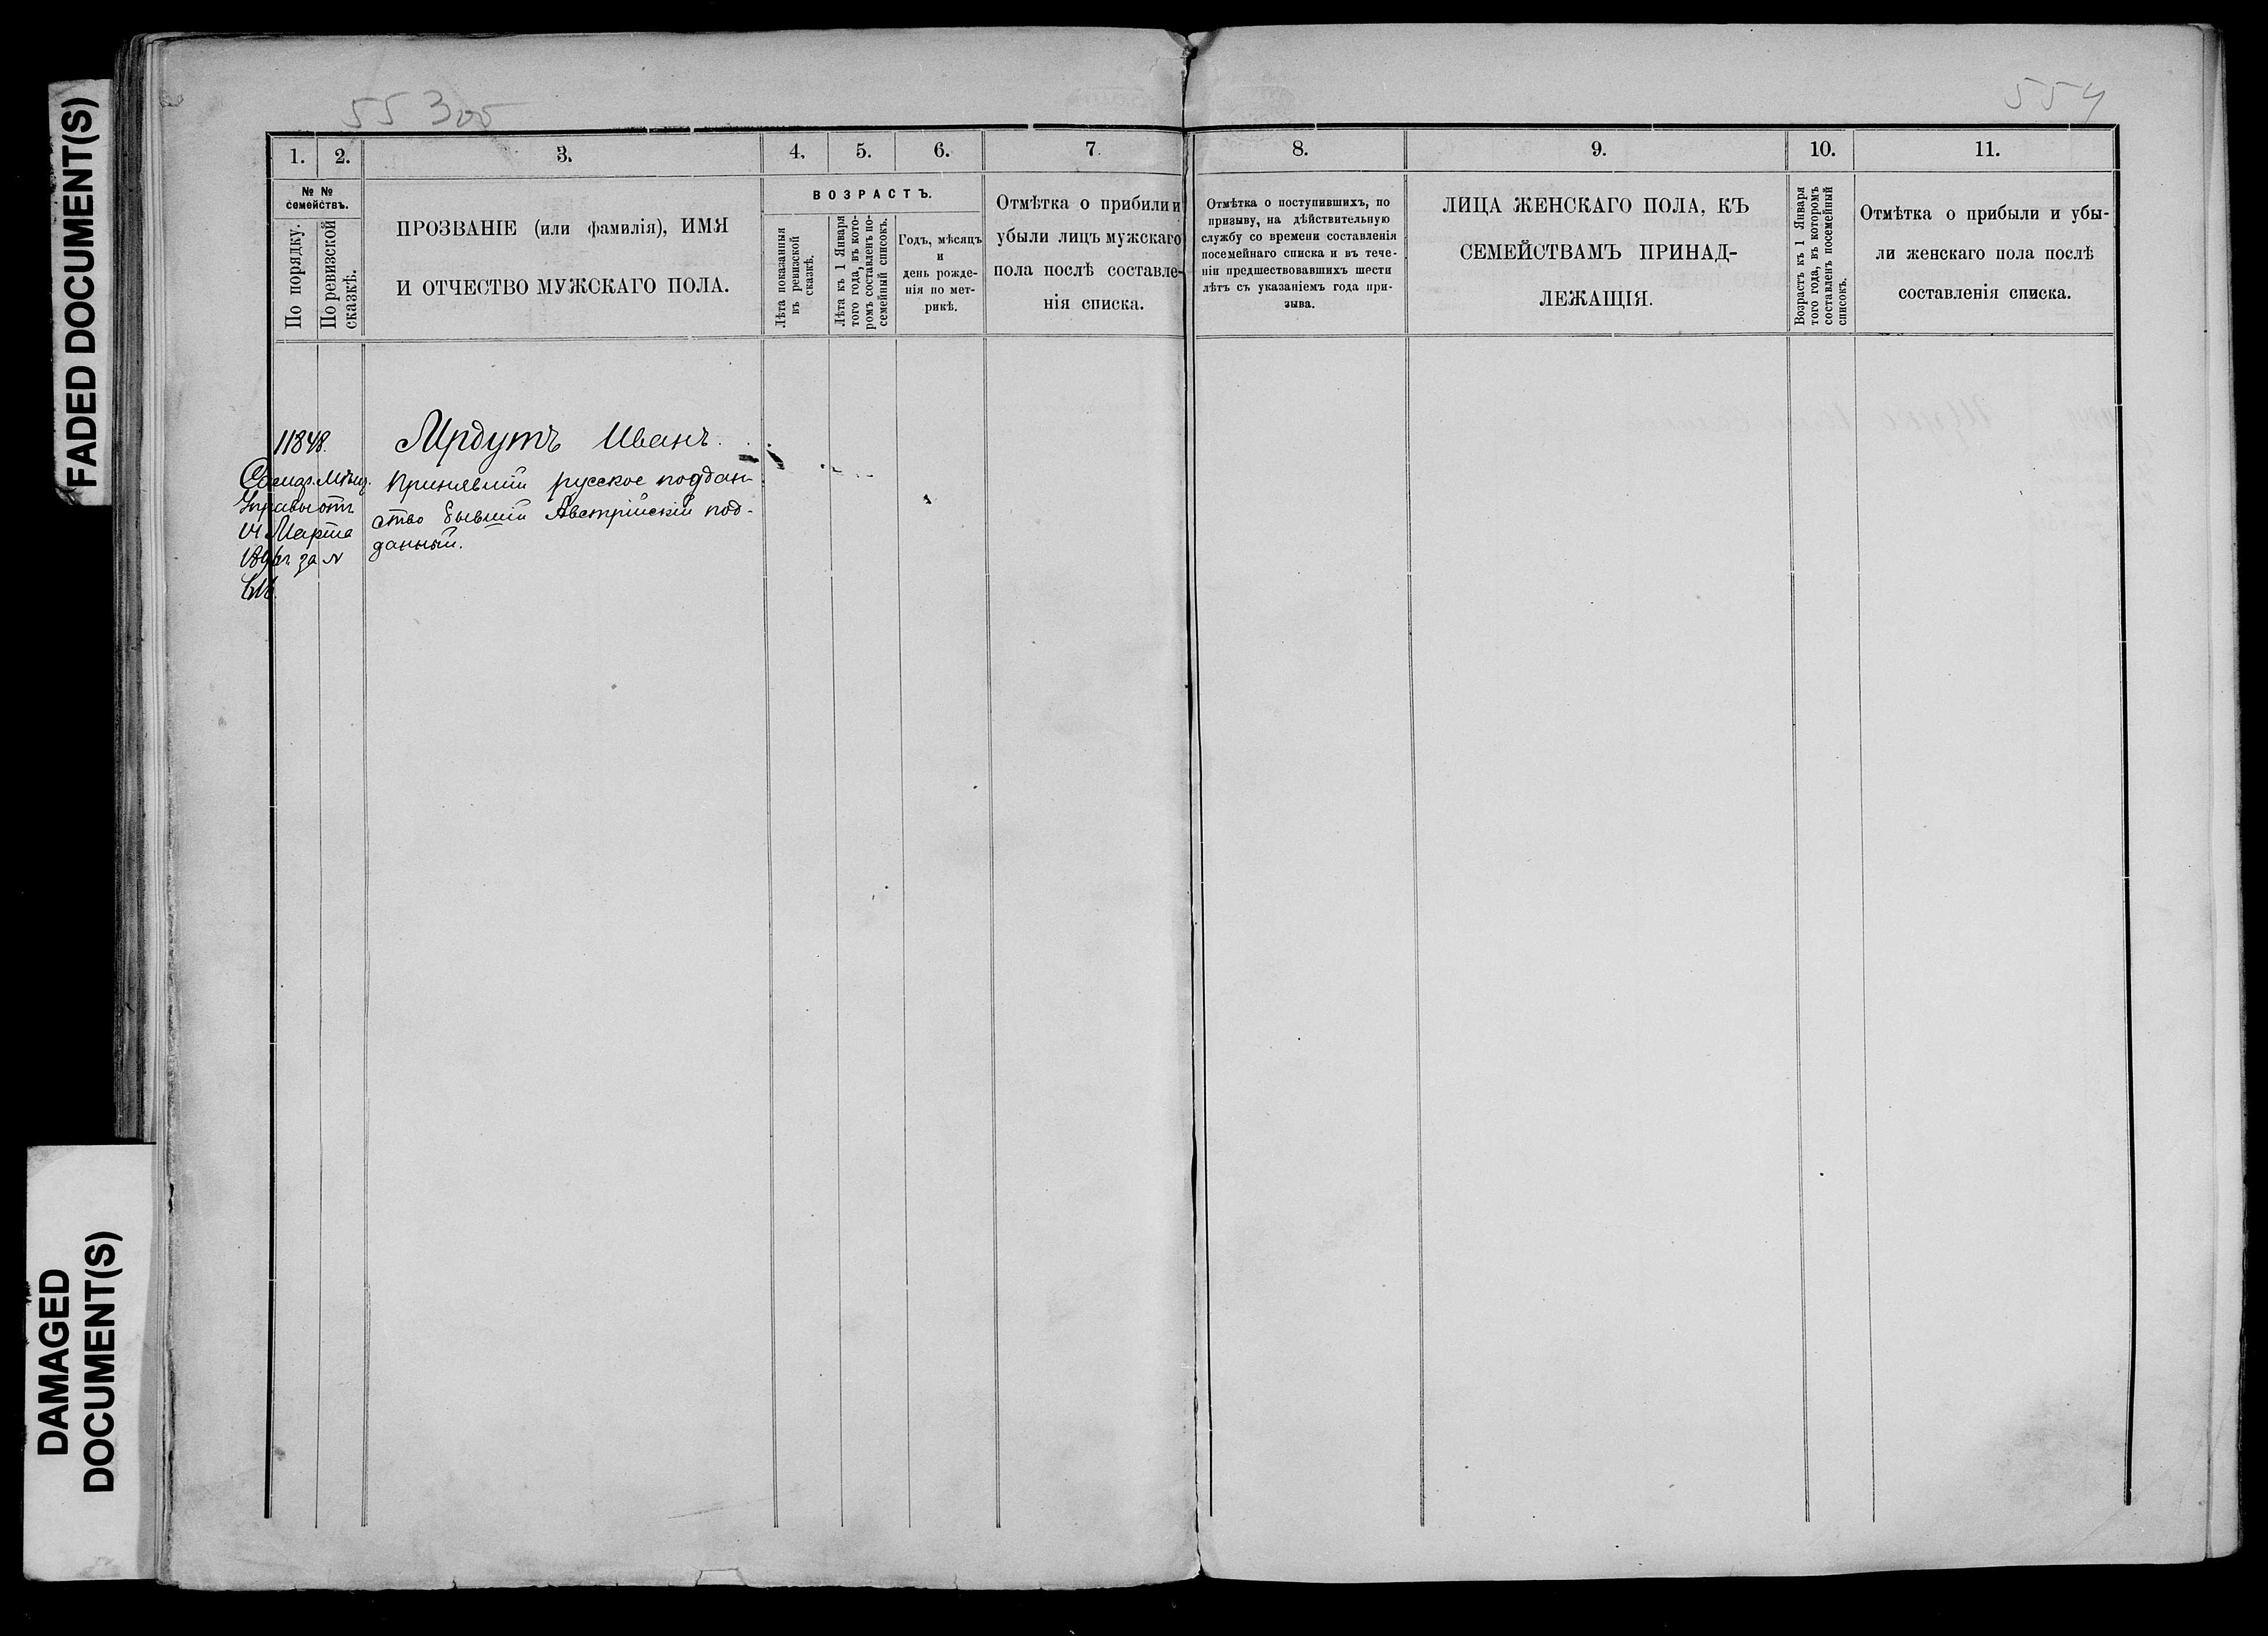 FADED DOCUMENT(S)
DAMAGED
DOCUMENT(S)
55305
554
1.
2.
3.
4.
5.
6.
7.
8.
9.
10.
11.
№ №
семействъ.
По порядку.
По ревизской
сказкѣ.
ПРОЗВАНІЕ (или фамилія), ИМЯ
И ОТЧЕСТВО МУЖСКАГО ПОЛА.
ВОЗРАСТЪ.
Лѣта показанныя
въ ревизской
сказкѣ.
Лѣта къ 1 Января
того года, въ кото-
ромъ составленъ по-
семейный списокъ.
Годъ, мѣсяцъ
и
день рожде-
нія по мет-
рикѣ.
Отмѣтка о прибыли и
убыли лицъ мужскаго
пола послѣ составле-
нія списка.
Отмѣтка о поступившихъ, по
призыву, на дѣйствительную
службу со времени составленія
посемейнаго списка и въ тече-
ніи предшествовавшихъ шести
лѣтъ съ указаніемъ года при-
зыва.
ЛИЦА ЖЕНСКАГО ПОЛА, КЪ
СЕМЕЙСТВАМЪ ПРИНАД-
ЛЕЖАЩІЯ.
Возрастъ къ 1 Января
того года, въ которомъ
составленъ посемейный
списокъ.
Отмѣтка о прибыли и убы-
ли женскаго пола послѣ
составленія списка.
11848.
Мѣщ.
Управы отъ
Марта
за №
Ирдутъ Иванъ.
Принявший русское поддан-
ство бывшій Австрійскій под-
данный.